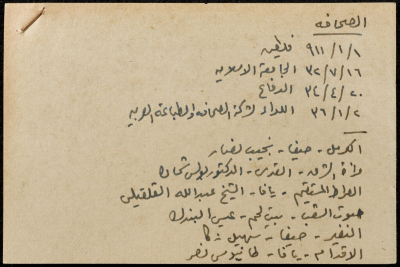 الصحافه
٩١١/١/١ فلسطين
٣٢/٧/١٦ الجامعة الاسلاميه
٣٤/٤/٢٠ الدفاع
٣٦/١/٢ اللواء لشركة الصحافه والطباعة العربيه
الكرمل - حيفا - نجيب نصار
مرآة الشرق - القدس - الدكتور بولس شحاده
الصراط المستقيم - يافا - الشيخ عبدالله القلقيلي
صوت الشعب - بيت لحم - عيسى البندك
النفير - حيفا - سهيل زكا
الاقدام - يافا - نصر